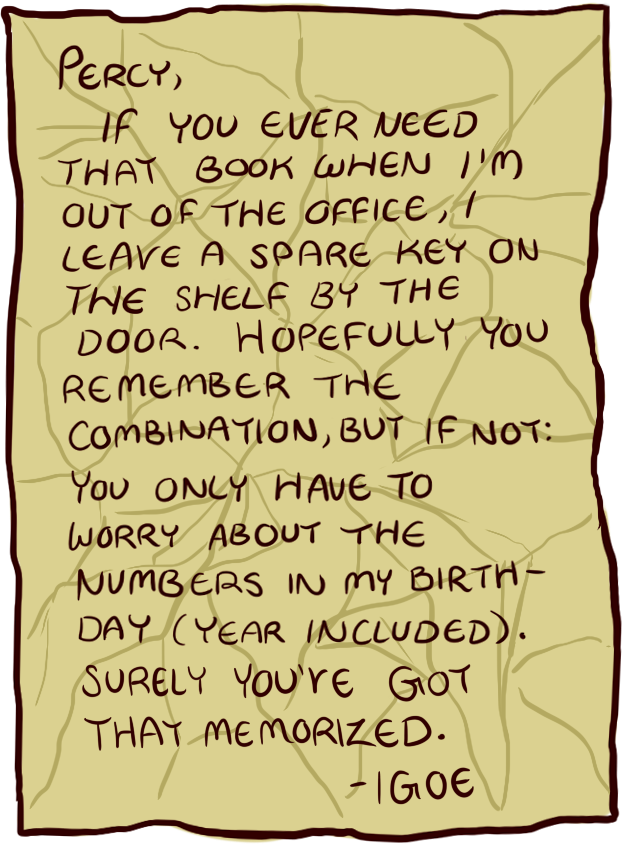 PERCY,
IF YOU EVER NEED
THAT BOOK WHEN I'M
OUT OF THE OFFICE, I
LEAVE A SPARE KEY ON
THE SHELF BY THE
DOOR. HOPEFULLY YOU
REMEMBER THE
COMBINATION, BUT IF NOT:
YOU ONLY HAVE TO
WORRY ABOUT THE
NUMBERS IN MY BIRTH-
DAY (YEAR INCLUDED).
SURELY YOU'RE GOT
THAT MEMORIZED.
-IGOE